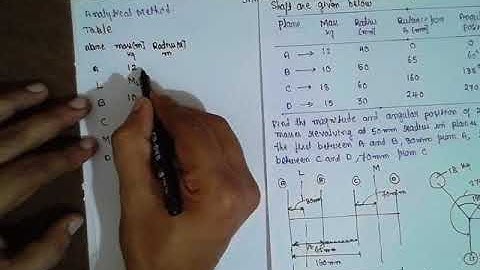 Analytical Method
Table
Plane mass(m) Radius(r)
kg m
A 12
L M
B 10
C
M
D
Shaft are given below
Plane Mass Radius Distance from Angular
kg mm A (mm) Position
A → 12 40 0 0
B → 10 50 65 60°
C → 18 60 160 135°
D → 15 30 240 270
Find the magnitude and angular position of 2
masses revolving at 50mm radius in planes
the first between A and B, 30mm from A,
between C and D, 70mm from C
L M
A B C D
30mm 70mm
65mm
160mm
18 kg